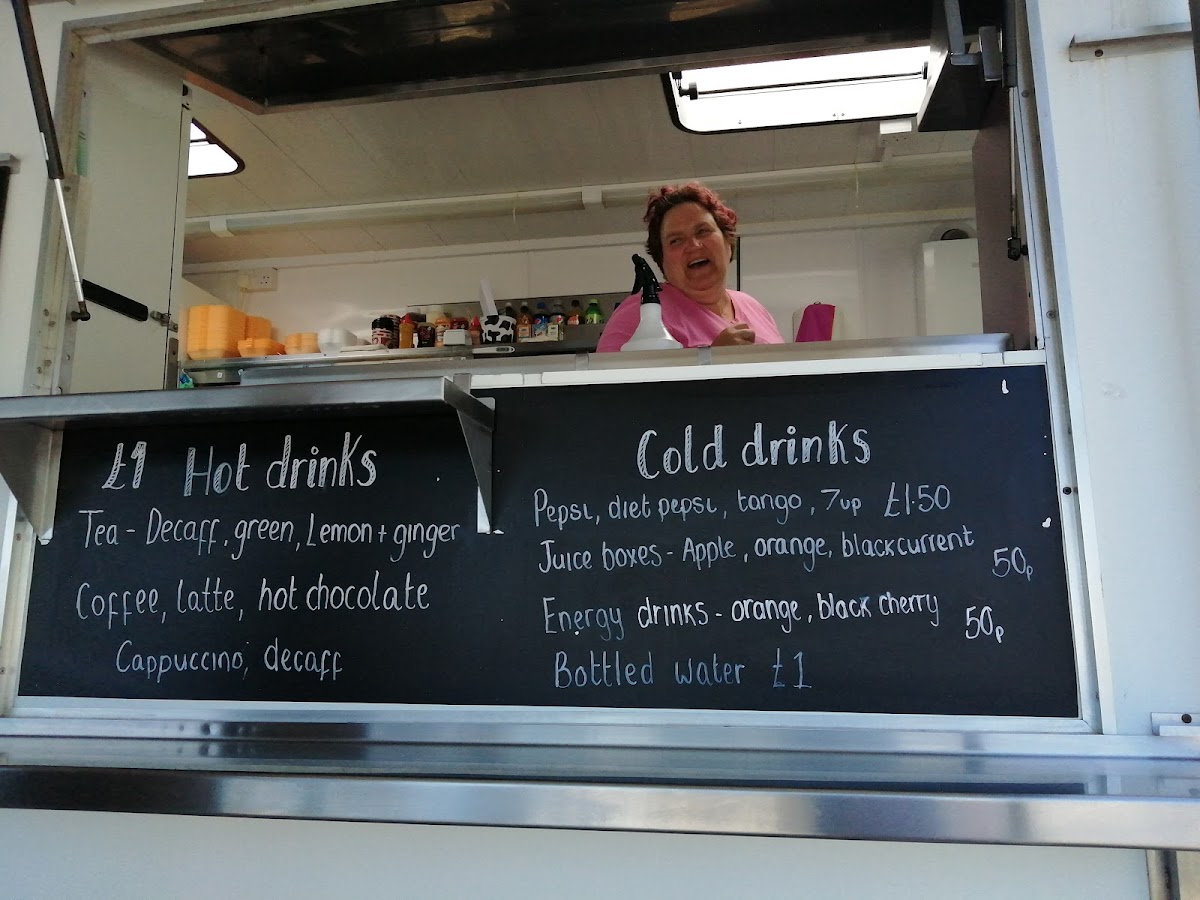 £1 Hot drinks
Tea - Decaff, green, Lemon + ginger
Coffee, latte, hot chocolate
Cappuccino, decaff
Cold drinks
Pepsi, diet pepsi, tango, 7up £1.50
Juice boxes - Apple, orange, blackcurrent 50p
Energy drinks - orange, black cherry 50p
Bottled water £1